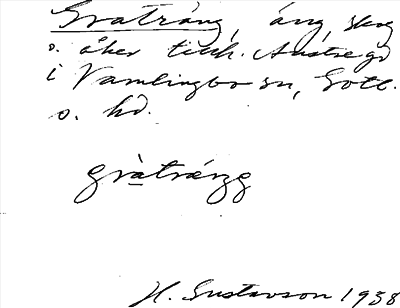 Graträng, äng, skog
o. åker tillh. Austregd
i Vamlingbo sn, Gotl.
s. hd.
gràträŋg
H. Gustavson 1938